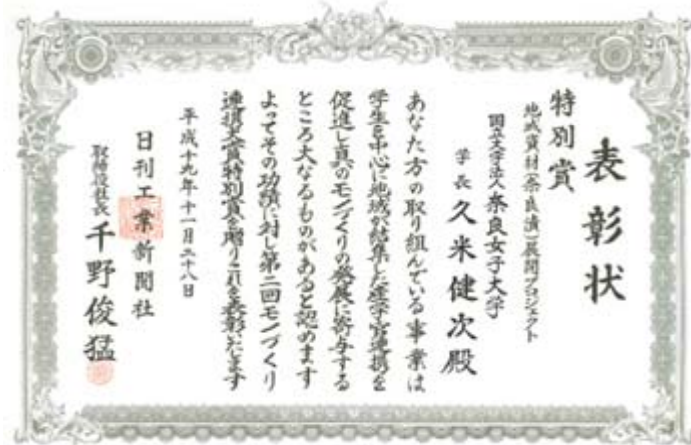 表彰状
特別賞
地域資材(奈良漬)展開プロジェクト
国立大学法人 奈良女子大学
学長 久米健次殿
あなた方の取り組んでいる事業は
学生を中心に地域が結集した産学官連携を
促進し真のモノづくりの発展に寄与する
ところ大なるものがあると認めます
よってその功績に対し第二回モノづくり
連携大賞特別賞を贈りこれを表彰いたします
平成十九年十一月二十八日
日刊工業新聞社
取締役社長 千野俊猛